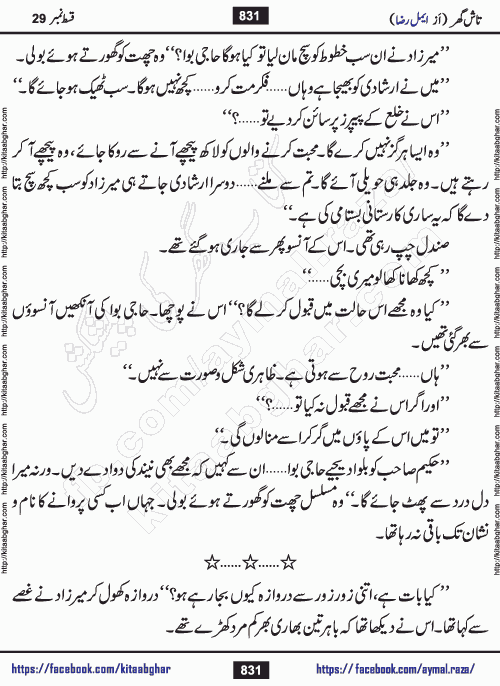 تاش گھر (از ایمل رضا) 831 قسط نمبر 29
’’میرزاد نے ان سب خطوط کو سچ مان لیا تو کیا ہوگا حاجی بوا؟‘‘ وہ چھت کو گھورتے ہوئے بولی۔
’’میں نے ارشادی کو بھیجا ہے وہاں...... فکر مت کرو...... کچھ نہیں ہوگا۔ سب ٹھیک ہو جائے گا۔‘‘
’’اس نے خلع کے پیپرز پر سائن کر دیے تو......؟‘‘
’’وہ ایسا ہرگز نہیں کرے گا۔ محبت کرنے والوں کو لاکھ پیچھے آنے سے روکا جائے، وہ پیچھے آ کر
رہتے ہیں۔ وہ جلد ہی حویلی آئے گا۔ تم سے ملنے...... دوسرا ارشادی جاتے ہی میرزاد کو سب کچھ سچ بتا
دے گا کہ یہ ساری کارستانی بستامی کی ہے۔‘‘
صندل چپ رہی تھی۔ اس کے آنسو پھر سے جاری ہو گئے تھے۔
’’کچھ کھانا کھا لو میری بچی......‘‘
’’کیا وہ مجھے اس حالت میں قبول کر لے گا؟‘‘ اس نے پوچھا۔ حاجی بوا کی آنکھیں آنسوؤں
سے بھر گئی تھیں۔
’’ہاں...... محبت روح سے ہوتی ہے۔ ظاہری شکل و صورت سے نہیں۔‘‘
’’اور اگر اس نے مجھے قبول نہ کیا تو......؟‘‘
’’تو میں اس کے پاؤں میں گر کر اسے منا لوں گی۔‘‘
’’حکیم صاحب کو بلوا دیجیے حاجی بوا...... ان سے کہیں کہ مجھے بھی نیند کی دوا دے دیں۔ ورنہ میرا
دل درد سے پھٹ جائے گا۔‘‘ وہ مسلسل چھت کو گھورتے ہوئے بولی۔ جہاں اب کسی پروانے کا نام و
نشان تک باقی نہ رہا تھا۔
☆......☆......☆
’’کیا بات ہے، اتنی زور زور سے دروازہ کیوں بجا رہے ہو؟‘‘ دروازہ کھول کر میرزاد نے غصے
سے کہا تھا۔ اس نے دیکھا تھا کہ باہر تین بھاری بھرکم مرد کھڑے تھے۔
https://facebook.com/kitaabghar 831 https://facebook.com/aymal.raza/
http://kitaabghar.com http://kitaabghar.com http://kitaabghar.com http://kitaabghar.com http://kitaabghar.com
http://kitaabghar.com http://kitaabghar.com http://kitaabghar.com http://kitaabghar.com http://kitaabghar.com